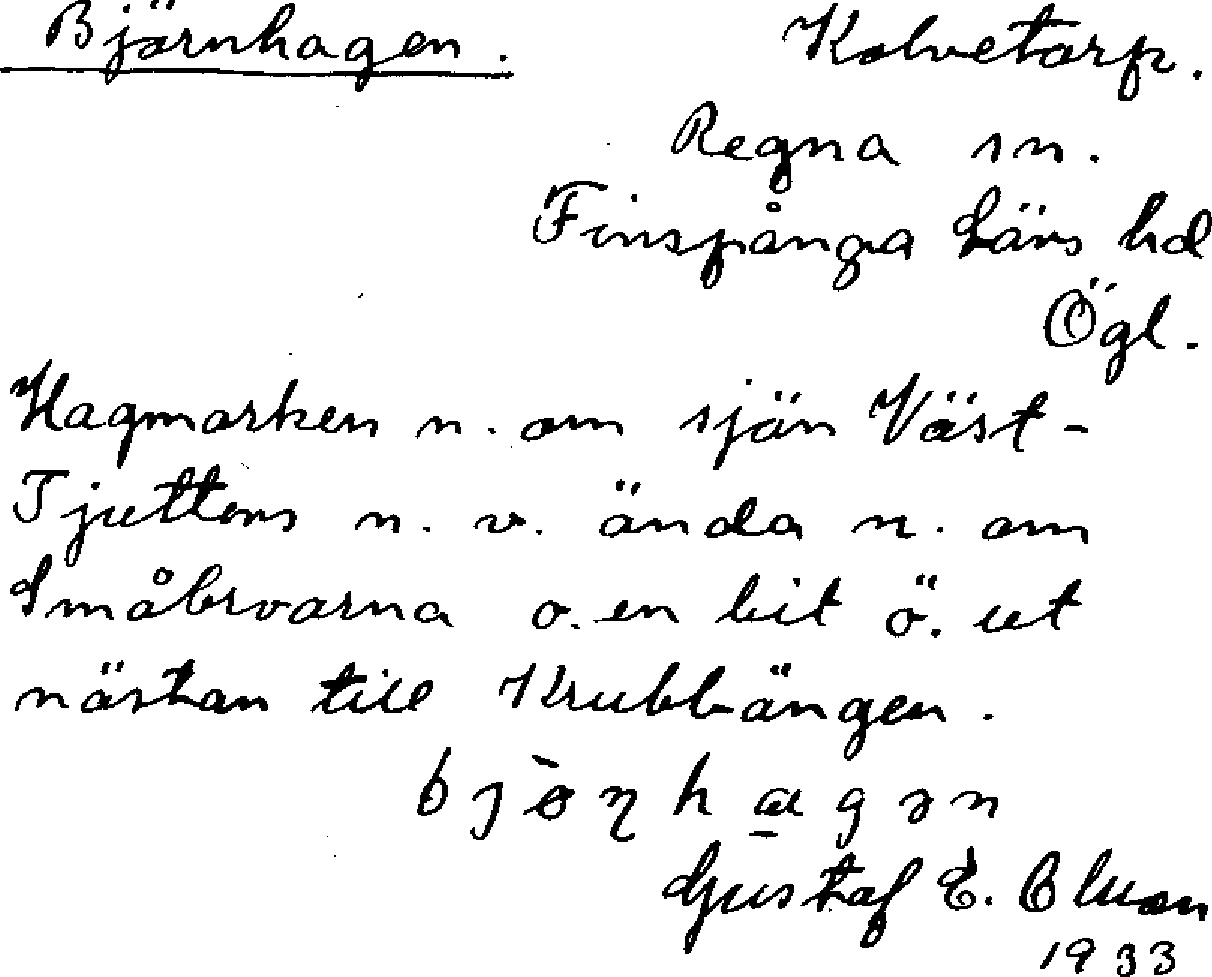 Björnhagen. Kolvetorp.
Regna sn.
Finspånga Läns hd
Ögl.
Hagmarken n. om sjön Väst-
Tjuttens n. v. ända n. om
o. en bit ö. ut
nästan till Krubbängen.
Gustaf E.
1933